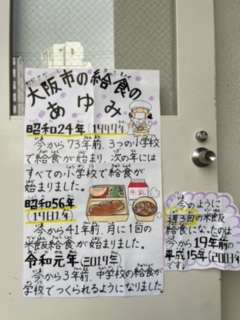 大阪市の給食の
あゆみ
昭和24年 1949年
今から73年前、3つの小学校
で給食が始まり、次の年には
すべての小学校で給食が
始まりました。
昭和56年
(1981年)
今から41年前、月に1回の
米飯給食が始まりました。
令和元年 2019年
今から3年前、中学校の給食が
学校でつくられるようになりました
今のように
週3回の米飯
給食になったのは
今から19年前の
平成15年(2003年)